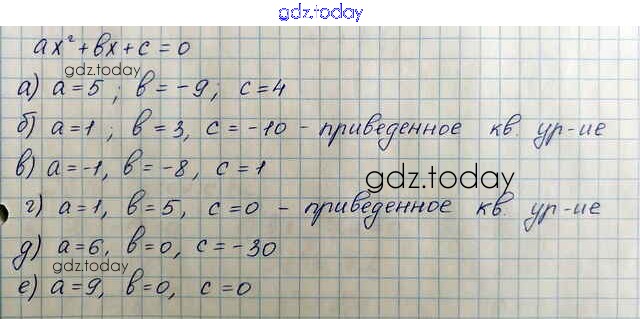 gdz.today
ax² + bx + c = 0
gdz.today
а) a = 5 ; b = -9 ; c = 4
б) a = 1 ; b = 3, c = -10 - приведенное кв. ур-ие
в) a = -1, b = -8, c = 1
gdz.today
г) a = 1, b = 5, c = 0 - приведенное кв. ур-ие
д) a = 6, b = 0, c = -30
gdz.today
е) a = 9, b = 0, c = 0